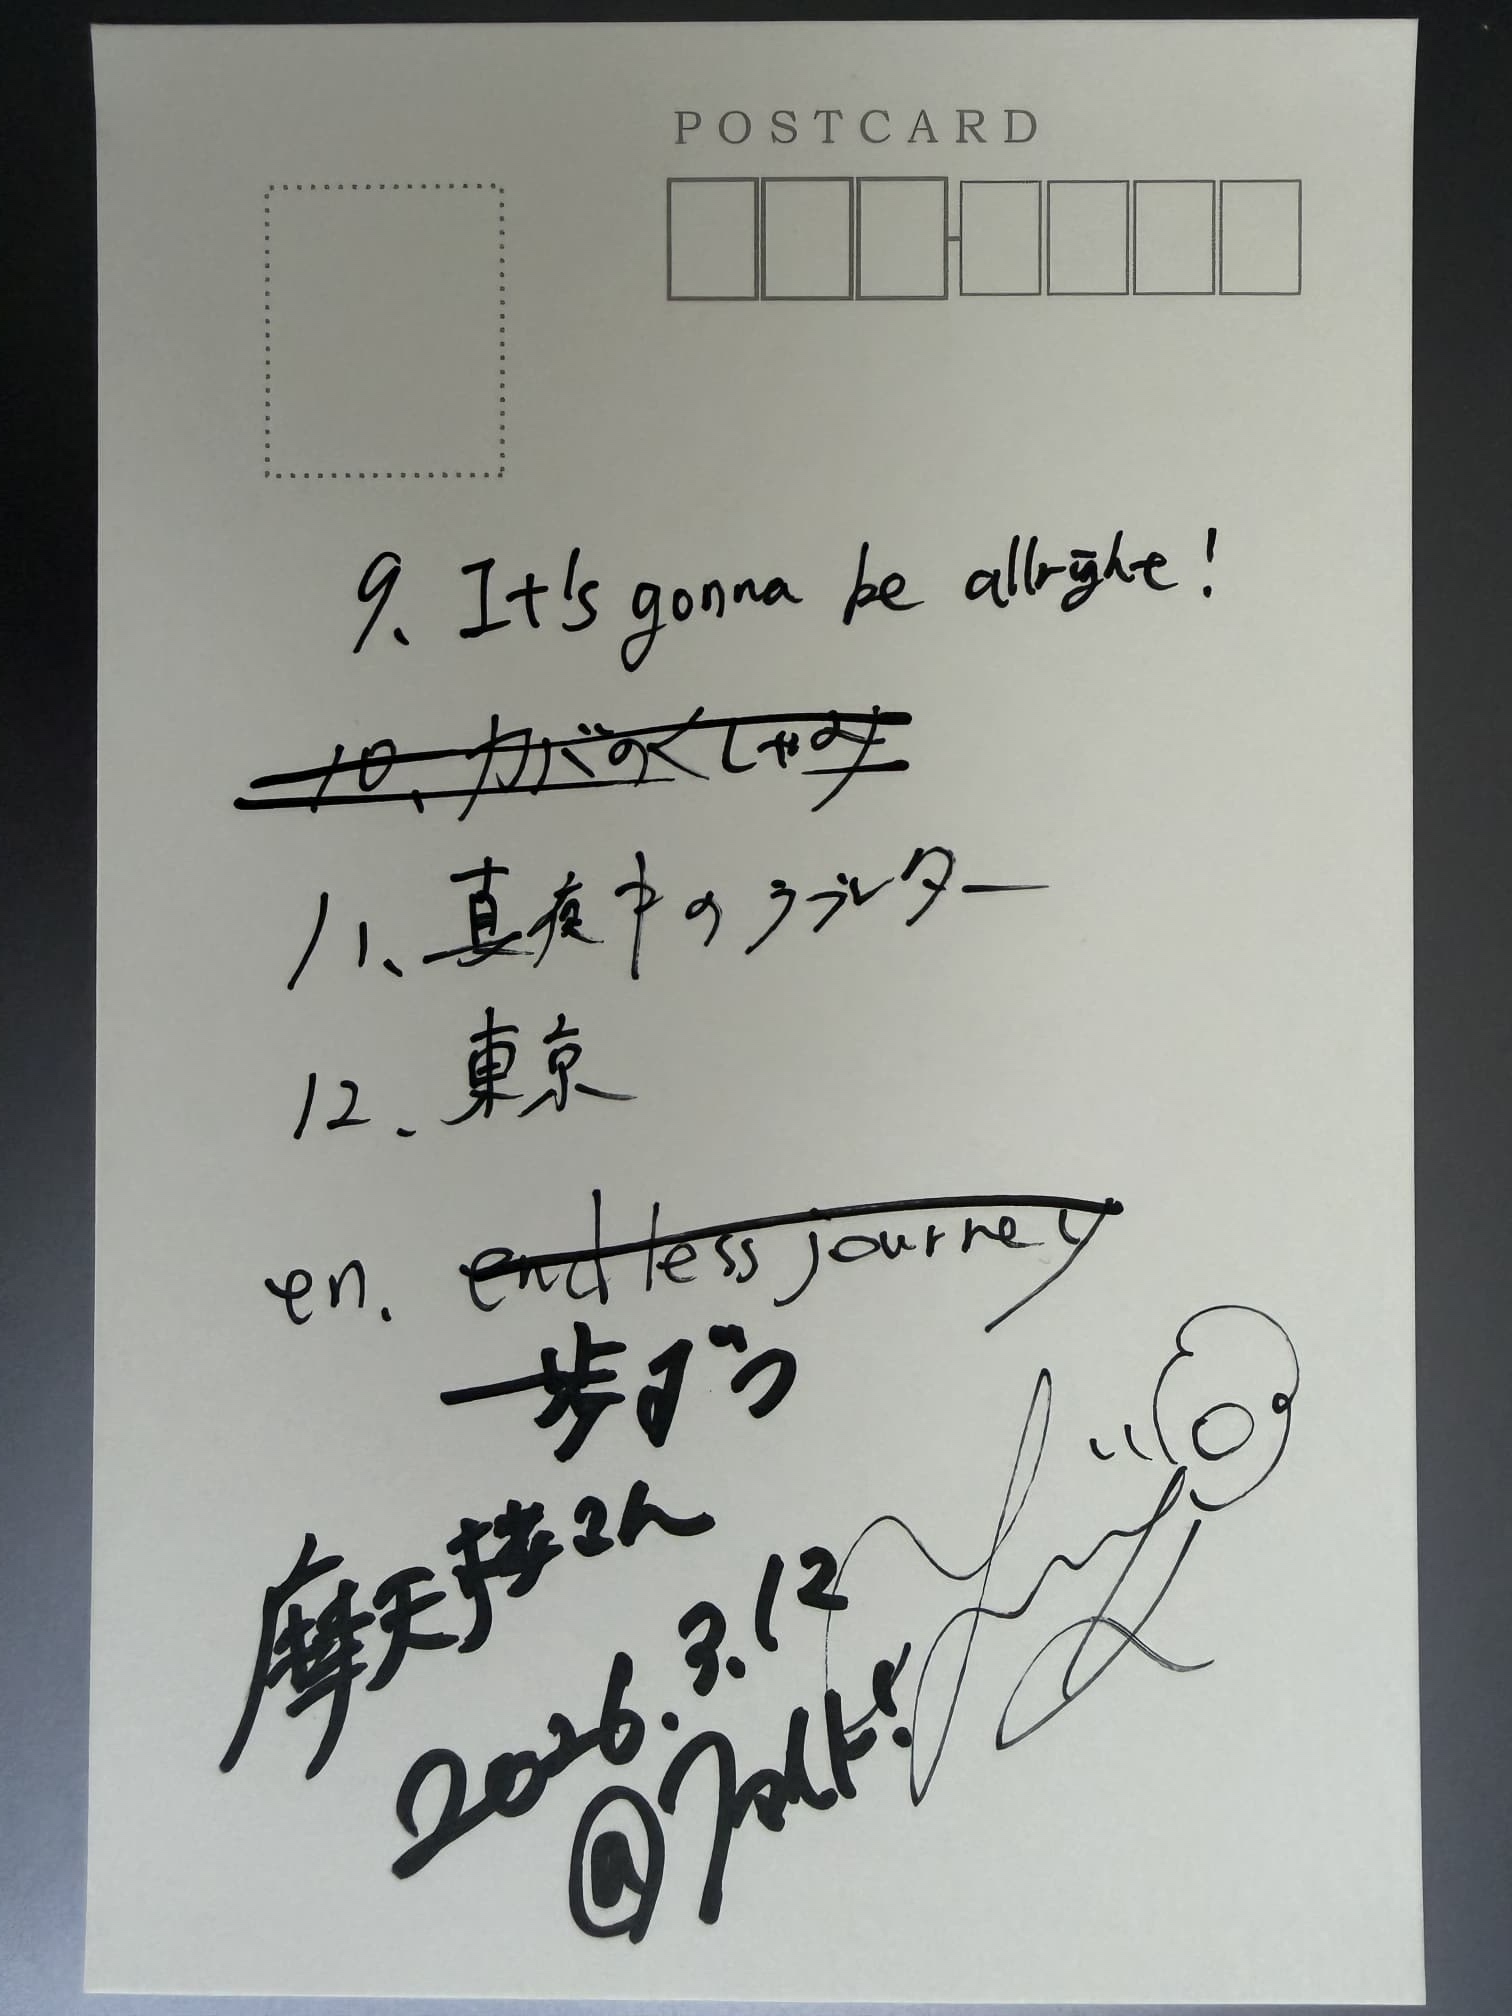 POSTCARD
9. It's gonna be allright!
10. カバのくしゃみ
11、真夜中のラブレター
12. 東京
en. endless journey
一歩ずつ
摩天楼さん
2026.3.12